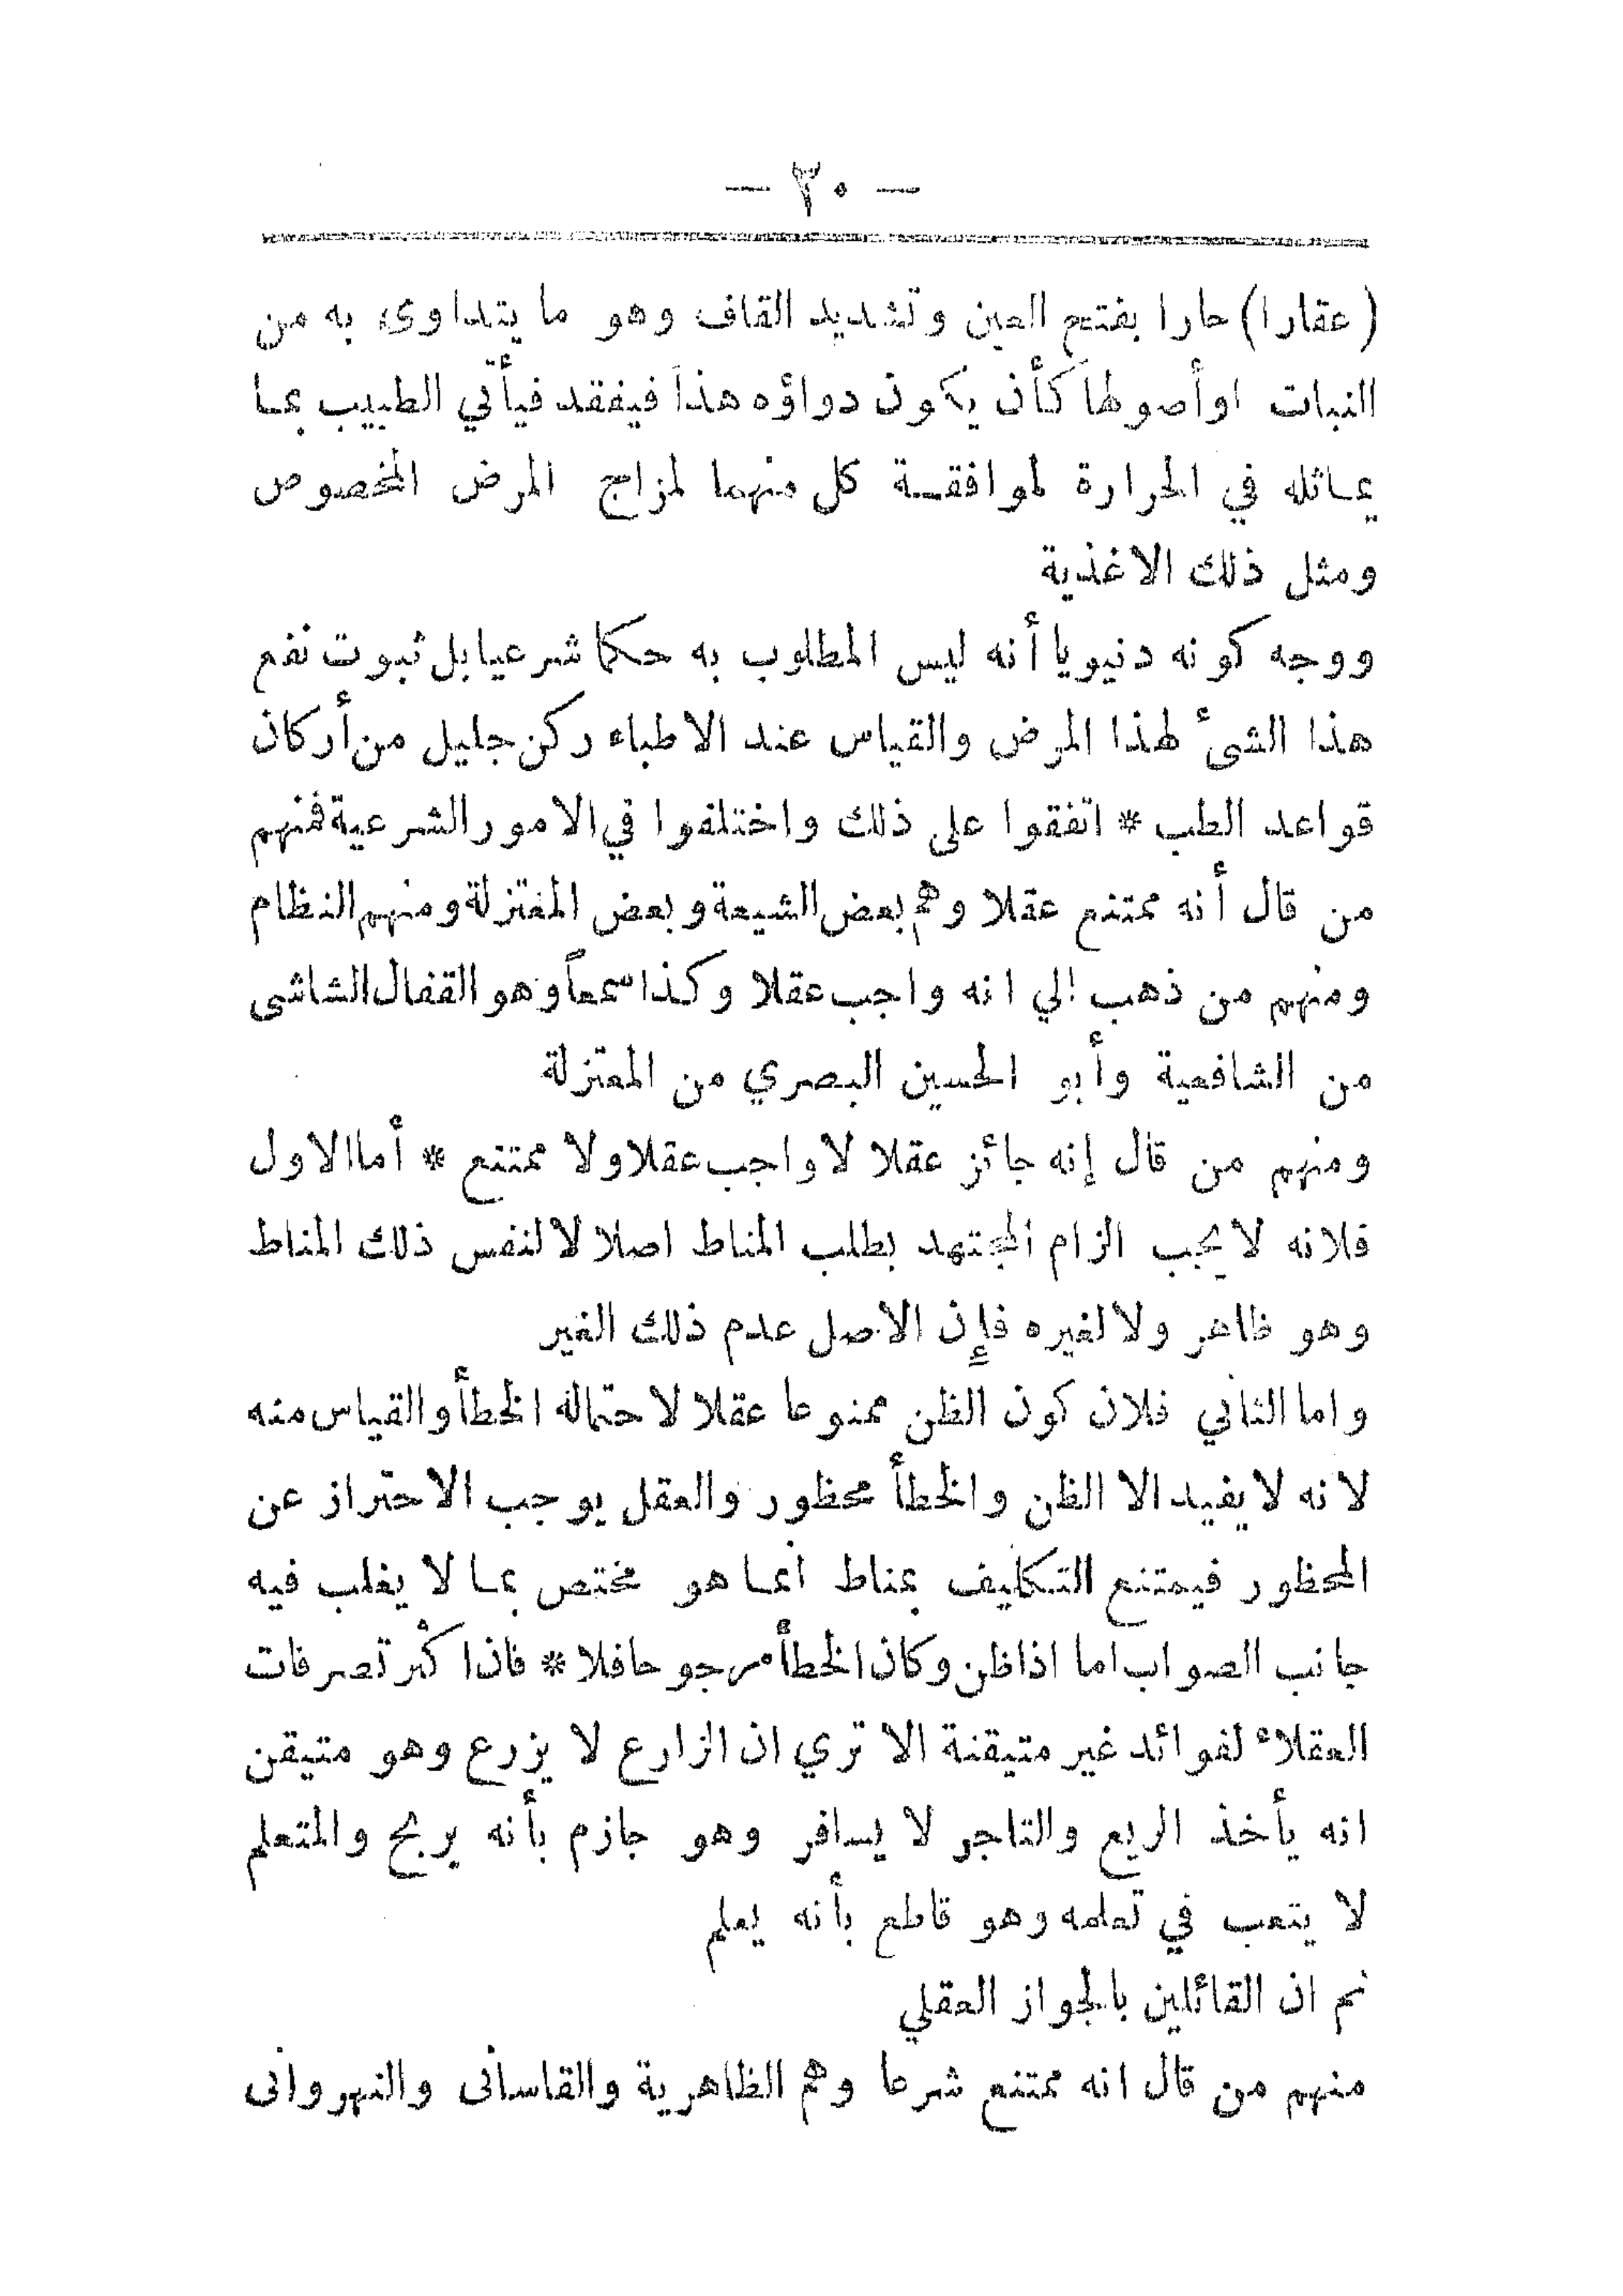 — ٣٠ —
(عقارا) حارا بفتح العين وتشديد القاف وهو ما يتداوى به من
النبات او أصولها كأن يكون دواؤه هذا فيفقد فيأتي الطبيب بما
يماثله في الحرارة لموافقة كل منهما لمزاج المرض المخصوص
ومثل ذلك الاغذية
ووجه كونه دنيويا أنه ليس المطلوب به حكما شرعيا بل ثبوت نفع
هذا الشئ لهذا المرض والقياس عند الاطباء ركن جليل من أركان
قواعد الطب * اتفقوا على ذلك واختلفوا في الامور الشرعية فمنهم
من قال أنه ممتنع عقلا وهم بعض الشيعة وبعض المعتزلة ومنهم النظام
ومنهم من ذهب إلي انه واجب عقلا وكذا سمعاً وهو القفال الشاشى
من الشافعية وأبو الحسين البصري من المعتزلة
ومنهم من قال إنه جائز عقلا لا واجب عقلا ولا ممتنع * أما الاول
فلانه لا يجب الزام المجتهد بطلب المناط اصلا لا لنفس ذلك المناط
وهو ظاهر ولا لغيره فإن الاصل عدم ذلك الغير
واما الثاني فلان كون الظن ممنوعا عقلا لاحتماله الخطأ والقياس منه
لانه لا يفيد الا الظن والخطأ محظور والعقل يوجب الاحتراز عن
المحظور فيمتنع التكليف بمناط انما هو مختص بما لا يغلب فيه
جانب الصواب اما اذا ظن وكان الخطأ مرجوحا فلا * فان اكثر تصرفات
العقلاء لفوائد غير متيقنة الا تري ان الزارع لا يزرع وهو متيقن
انه يأخذ الريع والتاجر لا يسافر وهو جازم بأنه يربح والمتعلم
لا يتعب في تعلمه وهو قاطع بأنه يعلم
ثم ان القائلين بالجواز العقلي
منهم من قال انه ممتنع شرعا وهم الظاهرية والقاسانى والنهروانى